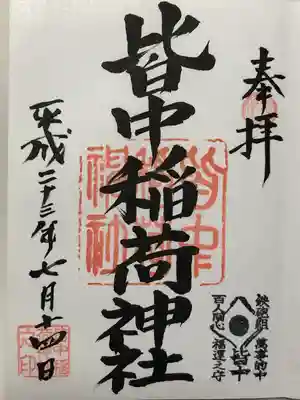 奉拝
皆中稲荷神社
平成二十三年七月十四日
皆中稲荷神社
鉄砲組
百人同心
皆中
萬事的中
福運之守